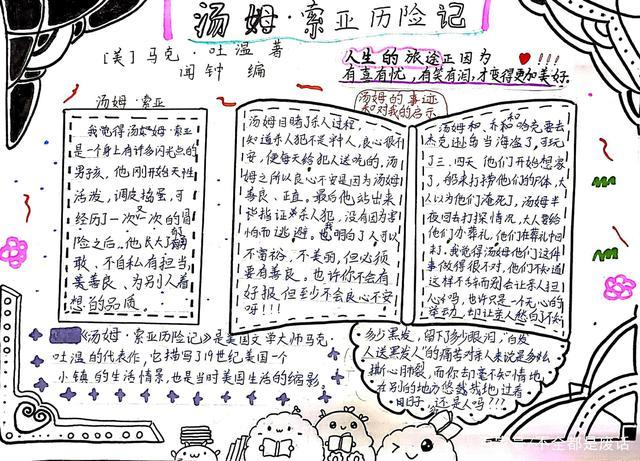 汤姆·索亚历险记
[美]马克·吐温 著
闻钟 编
人生的旅途正因为
有喜有忧，有笑有泪，才变得更加美好.
汤姆·索亚
我觉得汤姆·索亚
是一个身上有许多闪光点的
男孩，他刚开始天性
活发，调皮捣蛋，可
经历了一次又一次的冒
险之后，他长大了，勇
敢、不自私有担当
善良、为别人着
想的品质
汤姆的事迹
和对我的启示
汤姆目睹了杀人过程，
知道杀人犯不是
安，便每天给犯人送吃的，汤
姆之所以良心不安是因为汤姆
善良、正直。最后他站出来
杀人犯，没有因为害
怕而逃避。也明白了人可以
不富裕，不美丽，但必须
要有善良。也许你不会有
好报但至少不会良心不安
呀!!!
汤姆和乔和哈克要去
杰克逊岛当海盗了，可玩
了三、四天他们开始想家
了，船来打捞他们的尸体，大
人以为他们淹死了，汤姆半
夜回去打探情况，大人要给
他们办葬礼，他们在葬礼中回
去。我觉得汤姆他们这件
事做得很不对，他们不知道
这样不辞而别会让亲人担
心吗，也许只是一个无心的
举动，却让亲人愁白了
多少黑发，留下了多少眼泪，"白发
人送黑发人"的痛苦对亲人来说是多么
撕心肺裂，而你却毫不知情地，
在别的地方悠哉哉地过着
日子，还是人吗???
《汤姆·索亚历险记》是美国文学大师马克·
吐温的代表作，它描写了19世纪美国一个
小镇的生活情景，也是当时美国生活的缩影。
不全都是废话